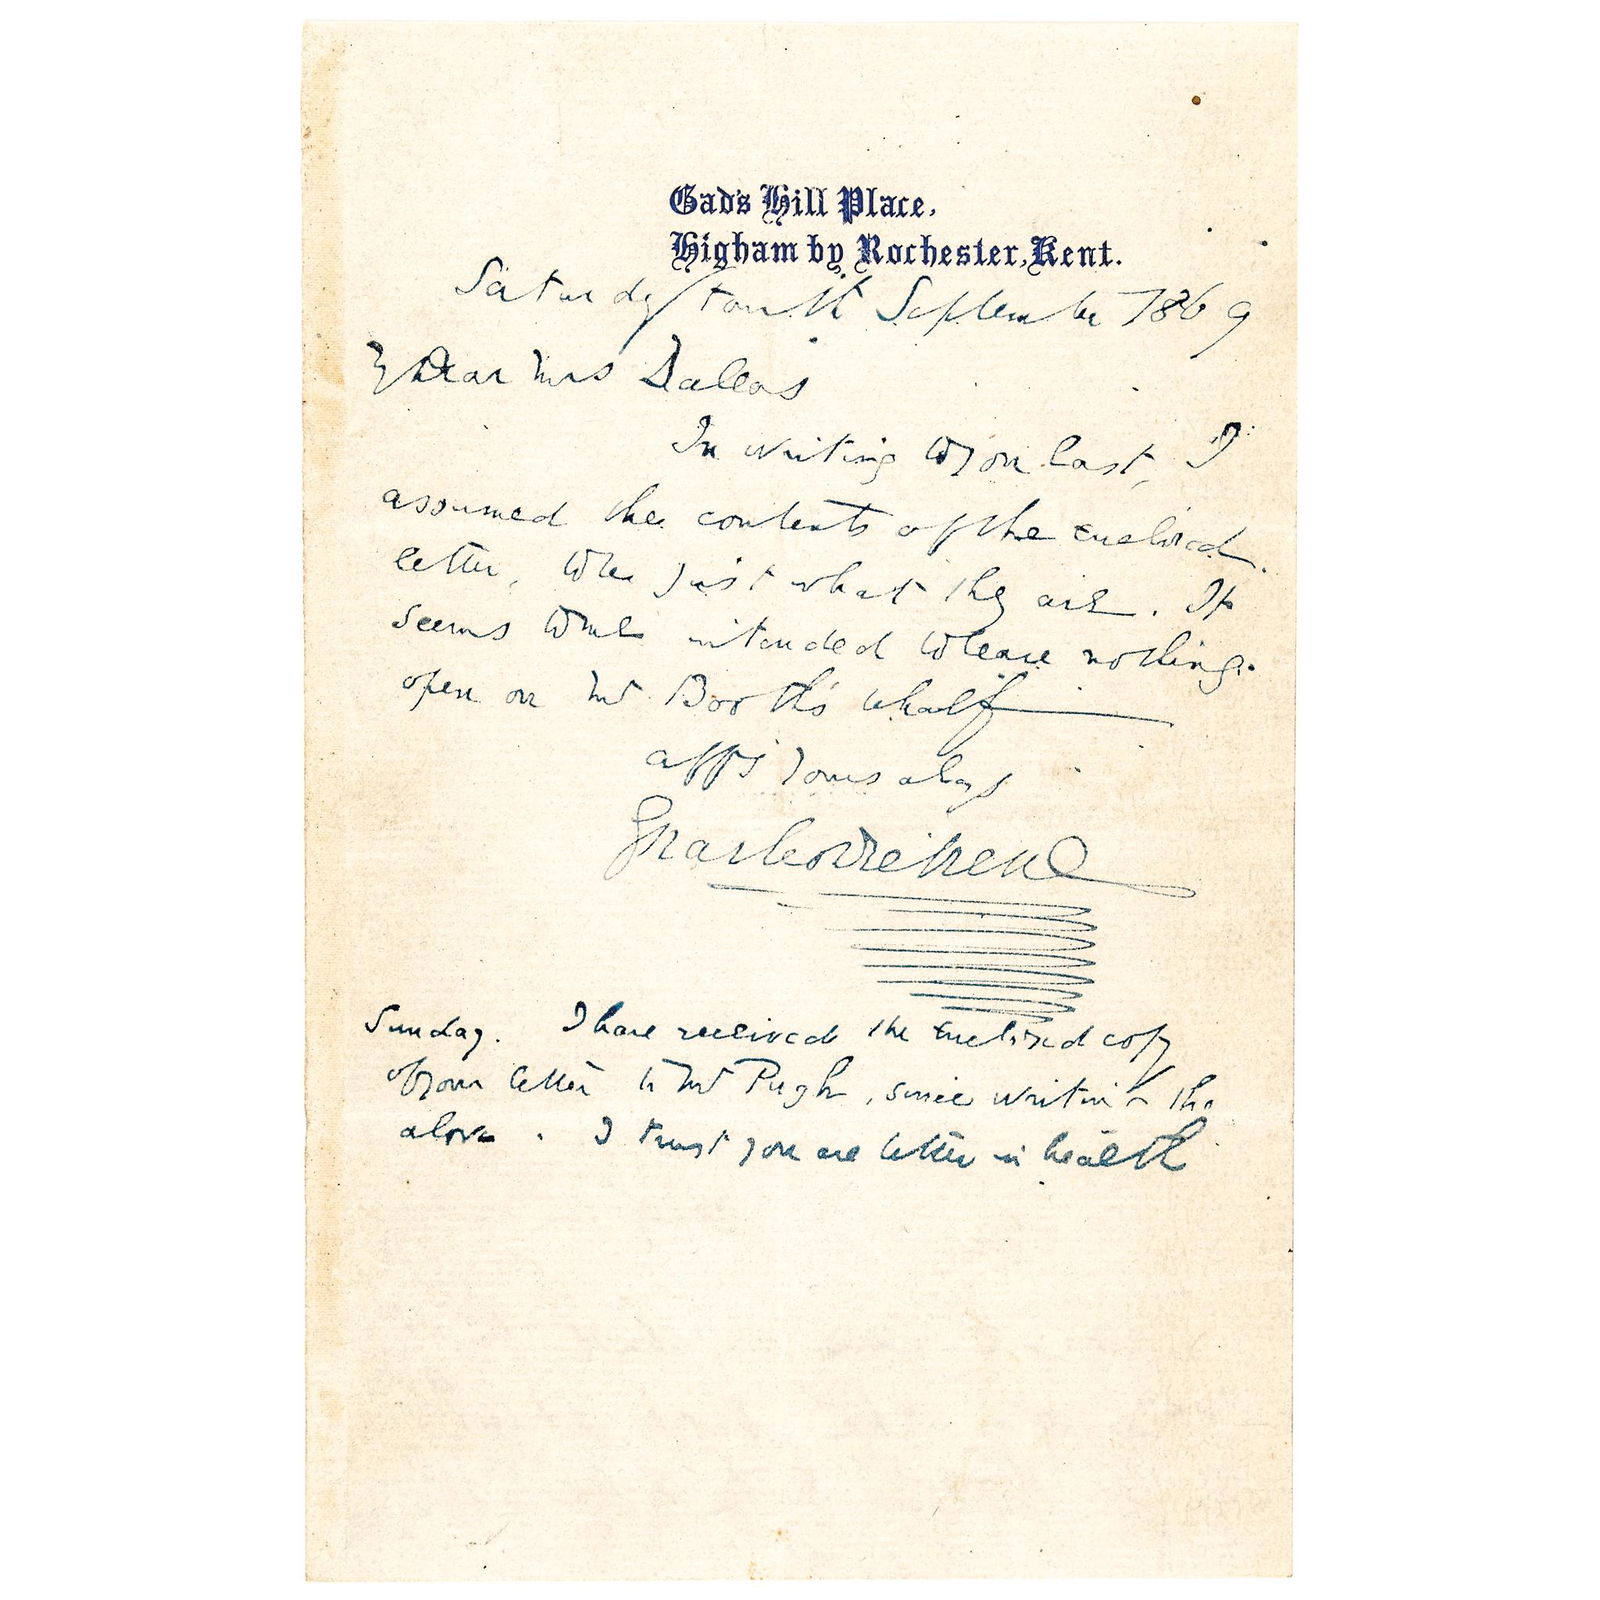 Gad's Hill Place,
Higham by Rochester, Kent.
Saturday fourth September 1869
My Dear Mrs Dallas
In writing to you last, I
assumed the contents of the enclosed
letter, to be just what they are. It
seems to me intended to leave nothing
open on Mr Booth's behalf
affy yours always
Charles Dickens
Sunday. I have received the enclosed copy
of your letter to Mr Pugh, since writing the
above. I trust you are better in health